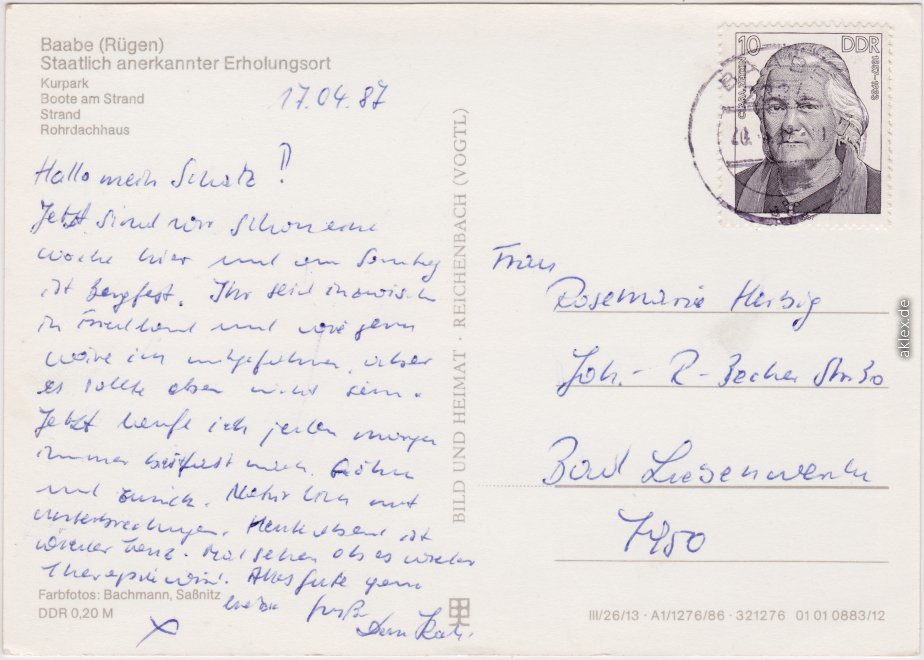 Baabe (Rügen)
Staatlich anerkannter Erholungsort
Kurpark
Boote am Strand
Strand
Rohrdachhaus
17.04.87
Hallo mein Schatz!
Jetzt sind wir schon eine
Woche hier und am Sonntag
ist Bergfest. Ihr seid inzwischen
in und wie gern
wäre ich mitgefahren, aber
es sollte eben nicht sein.
Jetzt laufe ich jeden morgen
immer nach Göhren
und zurück. Natürlich mit
Unterbrechungen. Heute abend ist
wieder Tanz. Mal sehen ob es wieder
Therapie wird. Alles Gute
Grüße
Deine
Farbfotos: Bachmann, Saßnitz
DDR 0,20 M
BILD UND HEIMAT · REICHENBACH (VOGTL)
10 DDR
CLARA ZETKIN
1857-1933
Frau
Rosemarie Herbig
Joh.- R-Becher Straße
Bad Liebenwerda
7950
III/26/13 · A1/1276/86 · 321276 01 01 0883/12
aklex.de